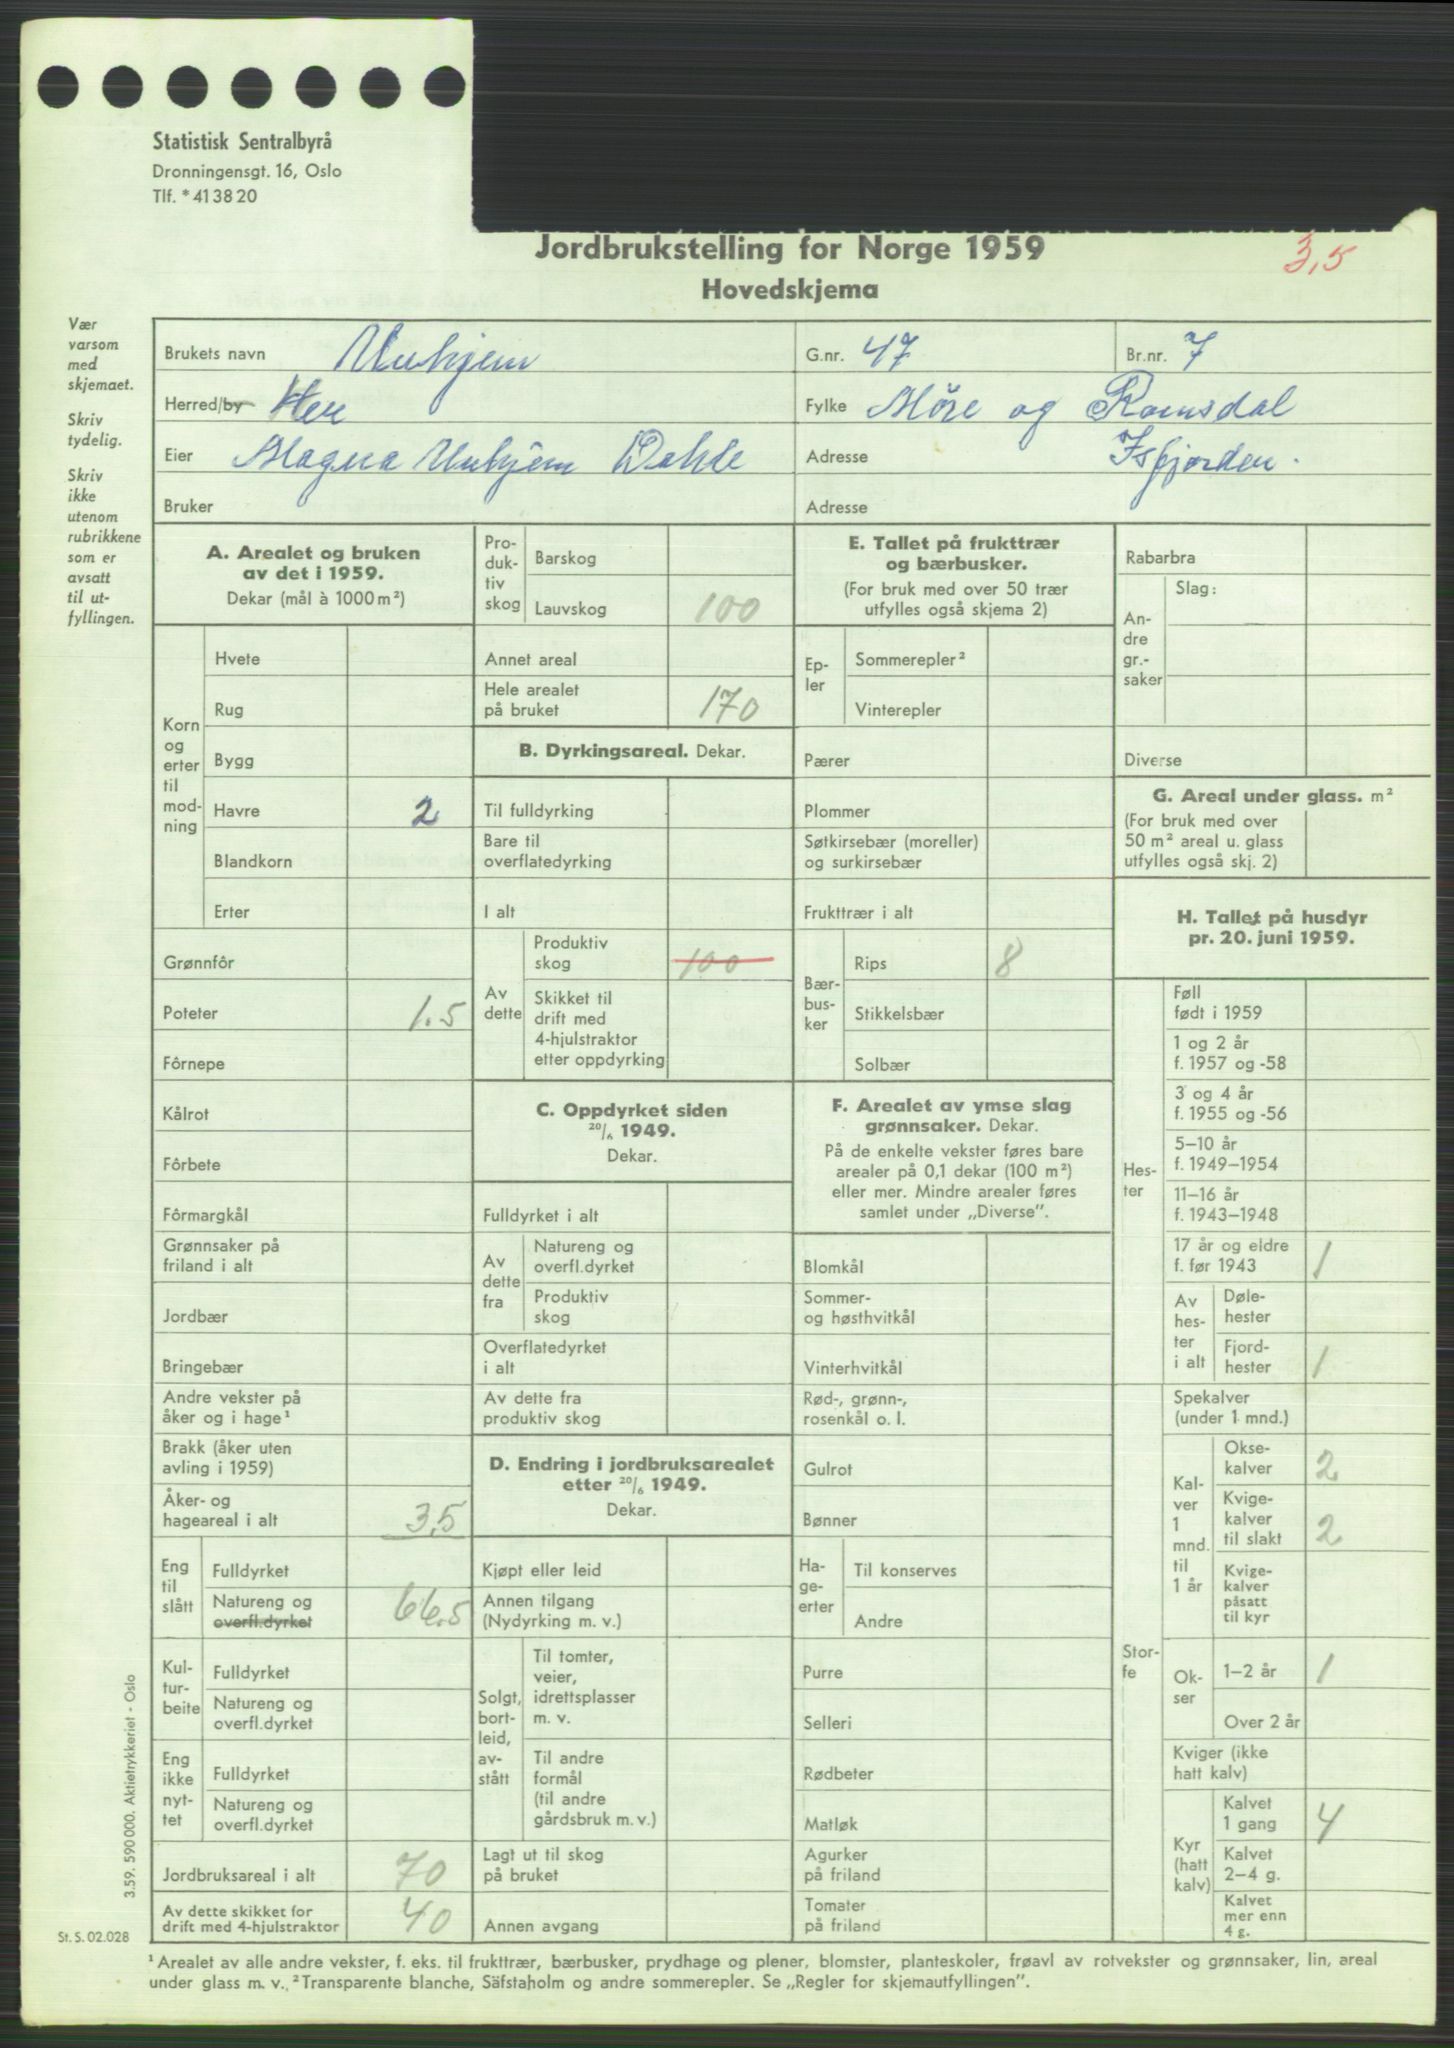 Statistisk Sentralbyrå
Dronningensgt. 16, Oslo
Tlf. * 41 38 20
Jordbrukstelling for Norge 1959
3,5
Hovedskjema
Vær
varsom
med
skjemaet.
Skriv
tydelig.
Skriv
ikke
utenom
rubrikkene
som er
avsatt
til ut-
fyllingen.
Brukets navn Unhjem G.nr. 47 Br.nr. 7
Herred/by Hen Fylke Møre og Romsdal
Eier Magna Unhjem Dahle Adresse Isfjorden.
Bruker Adresse
A. Arealet og bruken
av det i 1959.
Dekar (mål à 1000 m²)
Korn
og
erter
til
mod-
ning
Hvete
Rug
Bygg
Havre 2
Blandkorn
Erter
Grønnfôr
Poteter 1.5
Fôrnepe
Kålrot
Fôrbete
Fôrmargkål
Grønnsaker på
friland i alt
Jordbær
Bringebær
Andre vekster på
åker og i hage¹
Brakk (åker uten
avling i 1959)
Åker- og
hageareal i alt 3.5
Eng
til
slått
Fulldyrket
Natureng og
overfl.dyrket 66.5
Kul-
tur-
beite
Fulldyrket
Natureng og
overfl.dyrket
Eng
ikke
nyt-
tet
Fulldyrket
Natureng og
overfl.dyrket
Jordbruksareal i alt 70
Av dette skikket for
drift med 4-hjulstraktor 40
Pro-
duk-
tiv
skog
Barskog
Lauvskog 100
Annet areal
Hele arealet
på bruket 170
B. Dyrkingsareal. Dekar.
Til fulldyrking
Bare til
overflatedyrking
I alt
Av
dette
Produktiv
skog 100
Skikket til
drift med
4-hjulstraktor
etter oppdyrking
C. Oppdyrket siden
20/6 1949.
Dekar.
Fulldyrket i alt
Av
dette
fra
Natureng og
overfl.dyrket
Produktiv
skog
Overflatedyrket
i alt
Av dette fra
produktiv skog
D. Endring i jordbruksarealet
etter 20/6 1949.
Dekar.
Kjøpt eller leid
Annen tilgang
(Nydyrking m. v.)
Solgt,
bort-
leid,
av-
stått
Til tomter,
veier,
idrettsplasser
m. v.
Til andre
formål
(til andre
gårdsbruk m. v.)
Lagt ut til skog
på bruket
Annen avgang
E. Tallet på frukttrær
og bærbusker.
(For bruk med over 50 trær
utfylles også skjema 2)
Ep-
ler
Sommerepler²
Vinterepler
Pærer
Plommer
Søtkirsebær (moreller)
og surkirsebær
Frukttrær i alt
Bær-
bus-
ker
Rips 8
Stikkelsbær
Solbær
F. Arealet av ymse slag
grønnsaker. Dekar.
På de enkelte vekster føres bare
arealer på 0,1 dekar (100 m²)
eller mer. Mindre arealer føres
samlet under „Diverse”.
Blomkål
Sommer-
og høsthvitkål
Vinterhvitkål
Rød-, grønn-,
rosenkål o. l.
Gulrot
Bønner
Ha-
ge-
erter
Til konserves
Andre
Purre
Selleri
Rødbeter
Matløk
Agurker
på friland
Tomater
på friland
Rabarbra
An-
dre
gr.-
saker
Slag:
Diverse
G. Areal under glass. m²
(For bruk med over
50 m² areal u. glass
utfylles også skj. 2)
H. Tallet på husdyr
pr. 20. juni 1959.
Hes-
ter
Føll
født i 1959
1 og 2 år
f. 1957 og -58
3 og 4 år
f. 1955 og -56
5–10 år
f. 1949–1954
11–16 år
f. 1943–1948
17 år og eldre
f. før 1943 1
Av
hes-
ter
i alt
Døle-
hester
Fjord-
hester 1
Stor-
fe
Spekalver
(under 1 mnd.)
Kal-
ver
1
mnd.
til
1 år
Okse-
kalver 2
Kvige-
kalver
til slakt 2
Kvige-
kalver
påsatt
til kyr
Ok-
ser
1–2 år 1
Over 2 år
Kviger (ikke
hatt kalv)
Kyr
(hatt
kalv)
Kalvet
1 gang 4
Kalvet
2–4 g.
Kalvet
mer enn
4 g.
3.59. 590 000. Aktietrykkeriet - Oslo
St. S. 02.028
¹ Arealet av alle andre vekster, f. eks. til frukttrær, bærbusker, prydhage og plener, blomster, planteskoler, frøavl av rotvekster og grønnsaker, lin, areal
under glass m. v. ² Transparente blanche, Säfstaholm og andre sommerepler. Se „Regler for skjemautfyllingen”.